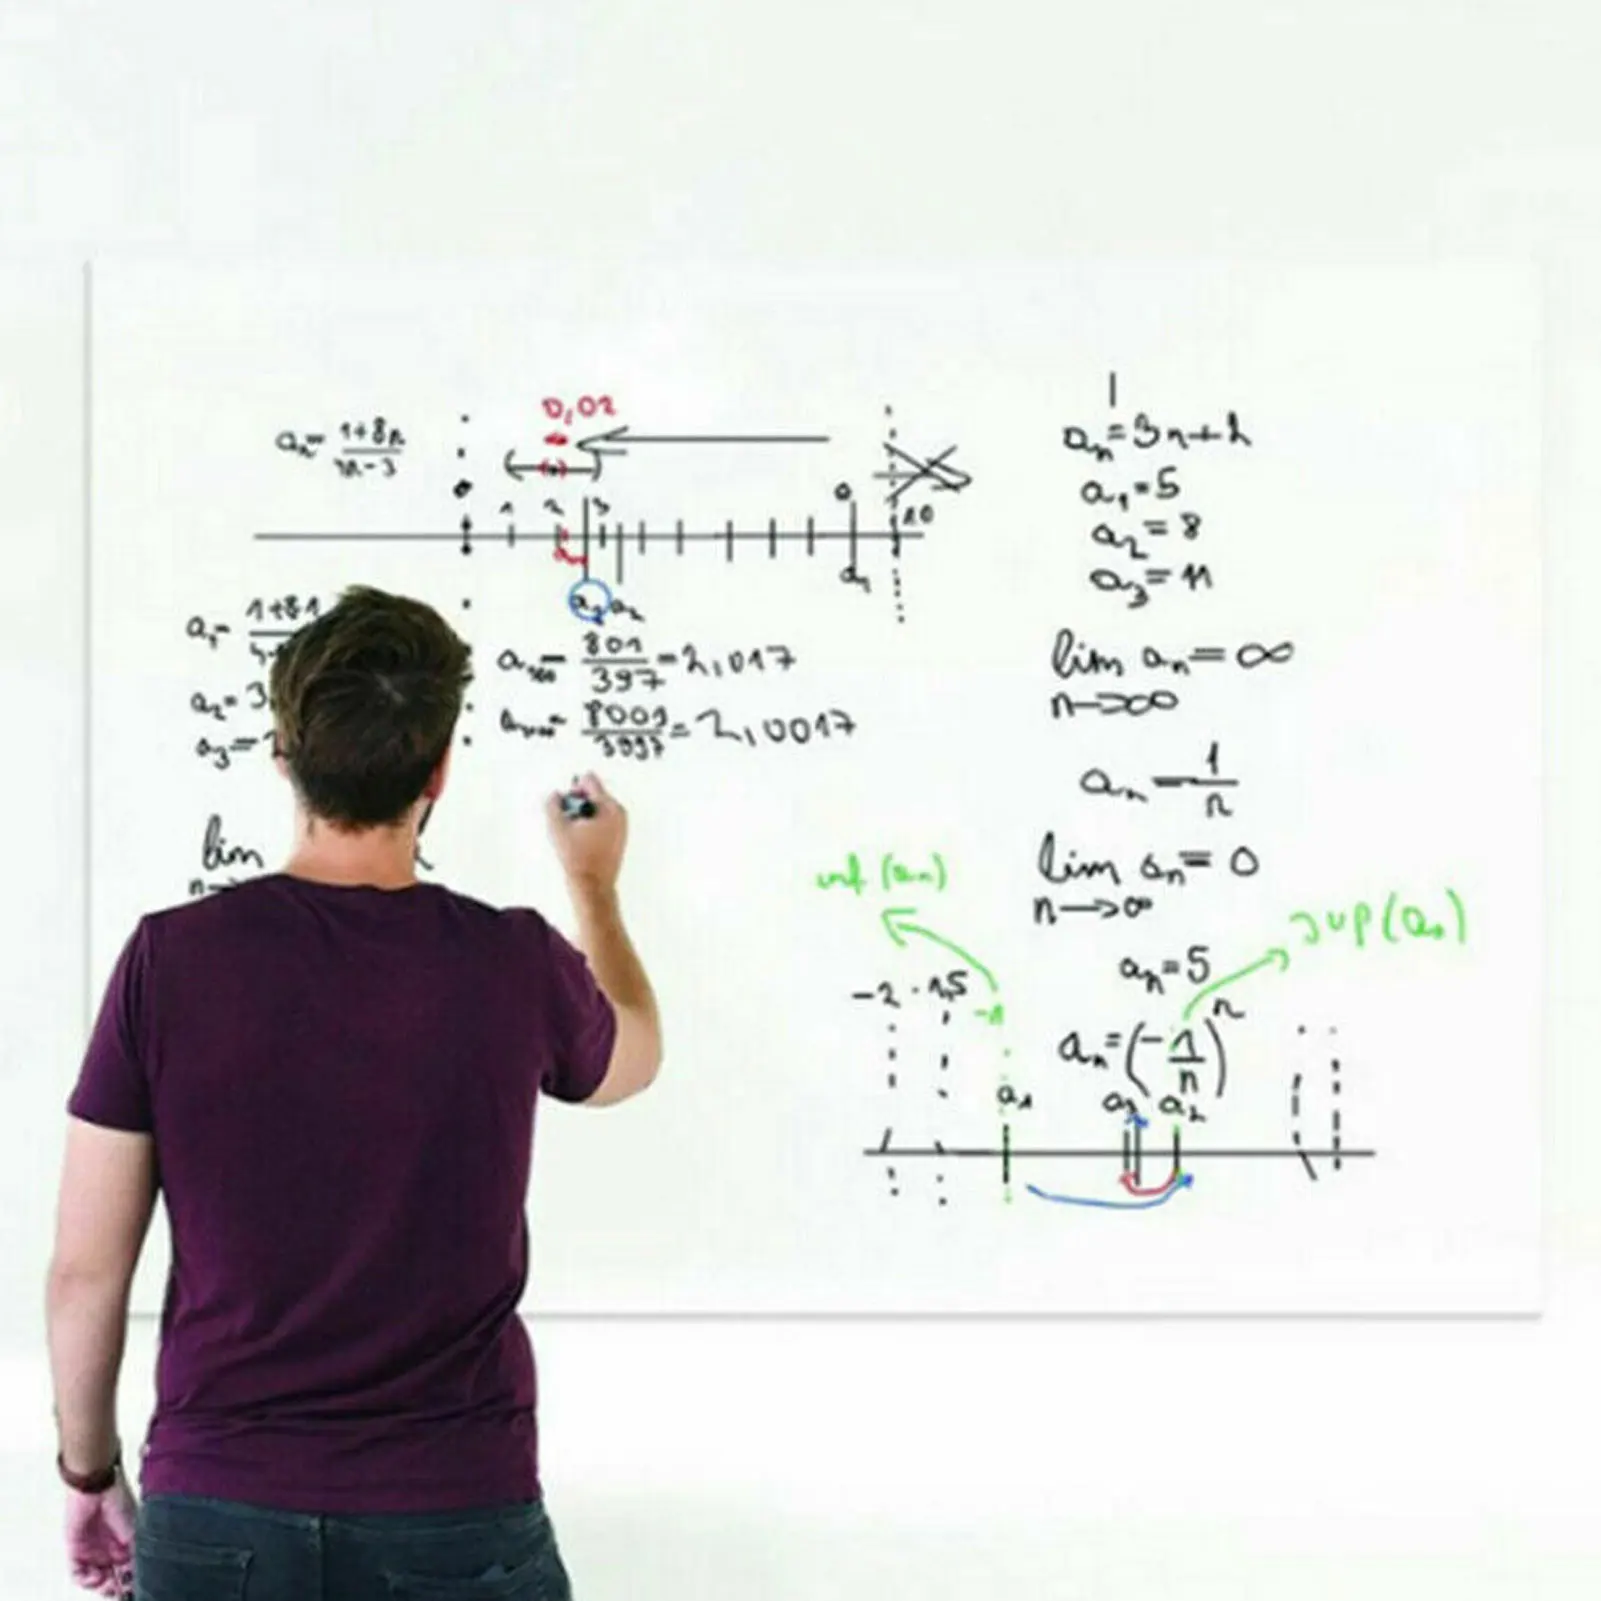 0,02
aₙ = (1+8n)/(4n-3)
1 2 3
10
a₁
a₃ a₂
a₁ = 1+8·1
a₂ = 3,
a₃ =
a₁₀₀ = 801/397 = 2,017
a₁₀₀₀ = 8001/3997 = 2,0017
lim
n→
aₙ = 3n+2
a₁ = 5
a₂ = 8
a₃ = 11
lim aₙ = ∞
n→∞
aₙ = 1/n
lim aₙ = 0
n→∞
inf (aₙ)
sup (aₙ)
aₙ = 5
-2 -1,5
-1
aₙ = (-1/n)ⁿ
a₁ a₃ a₂